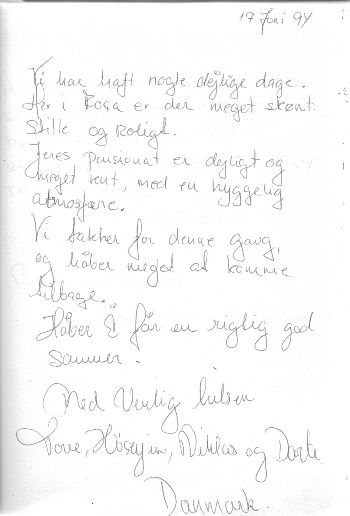 19 Juni 94
Vi har haft nogle dejlige dage.
Her i Foça er der meget skønt
stille og roligt.
Jeres pensionat er dejligt og
meget rent, med en hyggelig
atmosfære.
Vi takker for denne gang,
og håber meget at komme
tilbage.
Håber I får en rigtig god
sommer.
Med Venlig hilsen
Tove, Hüseyin, Niklas og Dorte
Danmark.